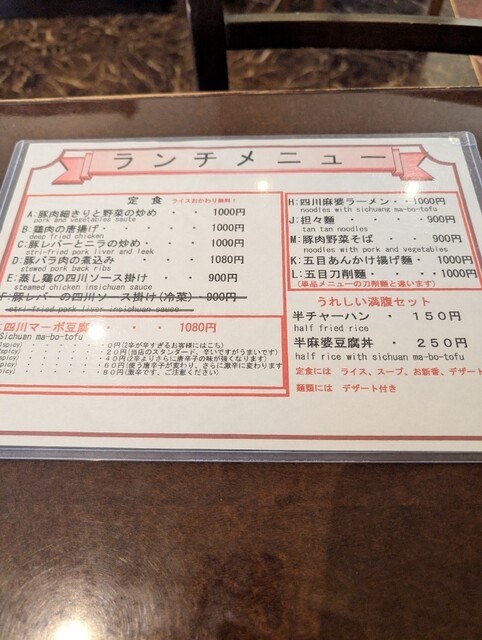 ランチメニュー
定 食 ライスおかわり無料!
A:豚肉細きりと野菜の炒め ・ ・ 1000円
pork and vegetables saute
B:鶏肉の唐揚げ・ ・ ・ ・ 1000円
deep fried chicken
C:豚レバーとニラの炒め・ ・ ・ 1000円
stri-fried pork liver and leek
D:豚バラ肉の煮込み ・ ・ 1080円
stewed pork back ribs
E:蒸し鶏の四川ソース掛け ・ ・ 900円
steamed chicken insichuan sauce
F:豚レバーの四川ソース掛け(冷菜)・・900円
stri-fried pork liver insichuan sauce
:四川マーボ豆腐・ ・ ・ ・ 1080円
Sichuan ma-bo-tofu
spicy) ・ ・ ・ ・ ・ ・ 0円(2辛が辛すぎるお客様にはこち)
spicy) ・ ・ ・ ・ ・ ・ 20円(当店のスタンダード、辛いですがうまいです)
spicy) ・ ・ ・ ・ ・ ・ 40円(2辛よりさらに唐辛子の味が強くなります)
spicy) ・ ・ ・ ・ ・ ・ 60円(使う唐辛子が変わり、さらに激辛に変わります
spicy) ・ ・ ・ ・ ・ ・ 80円(激辛です、ご注意ください)
H:四川麻婆ラーメン・・1000円
noodles with sichuang ma-bo-tofu
J:担々麺 ・ ・ ・ ・ 900円
tan tan noodles
M:豚肉野菜そば ・ ・ ・ 900円
noodles with pork and vegetables
K:五目あんかけ揚げ麺・ 1000円
L:五目刀削麺・ ・ ・ ・1000円
(単品メニューの刀削麺と違います)
うれしい満腹セット
半チャーハン ・ 150円
half fried rice
半麻婆豆腐丼 ・ 250円
half rice with sichuan ma-bo-tofu
定食には ライス、スープ、お新香、デザート
麺類には デザート付き